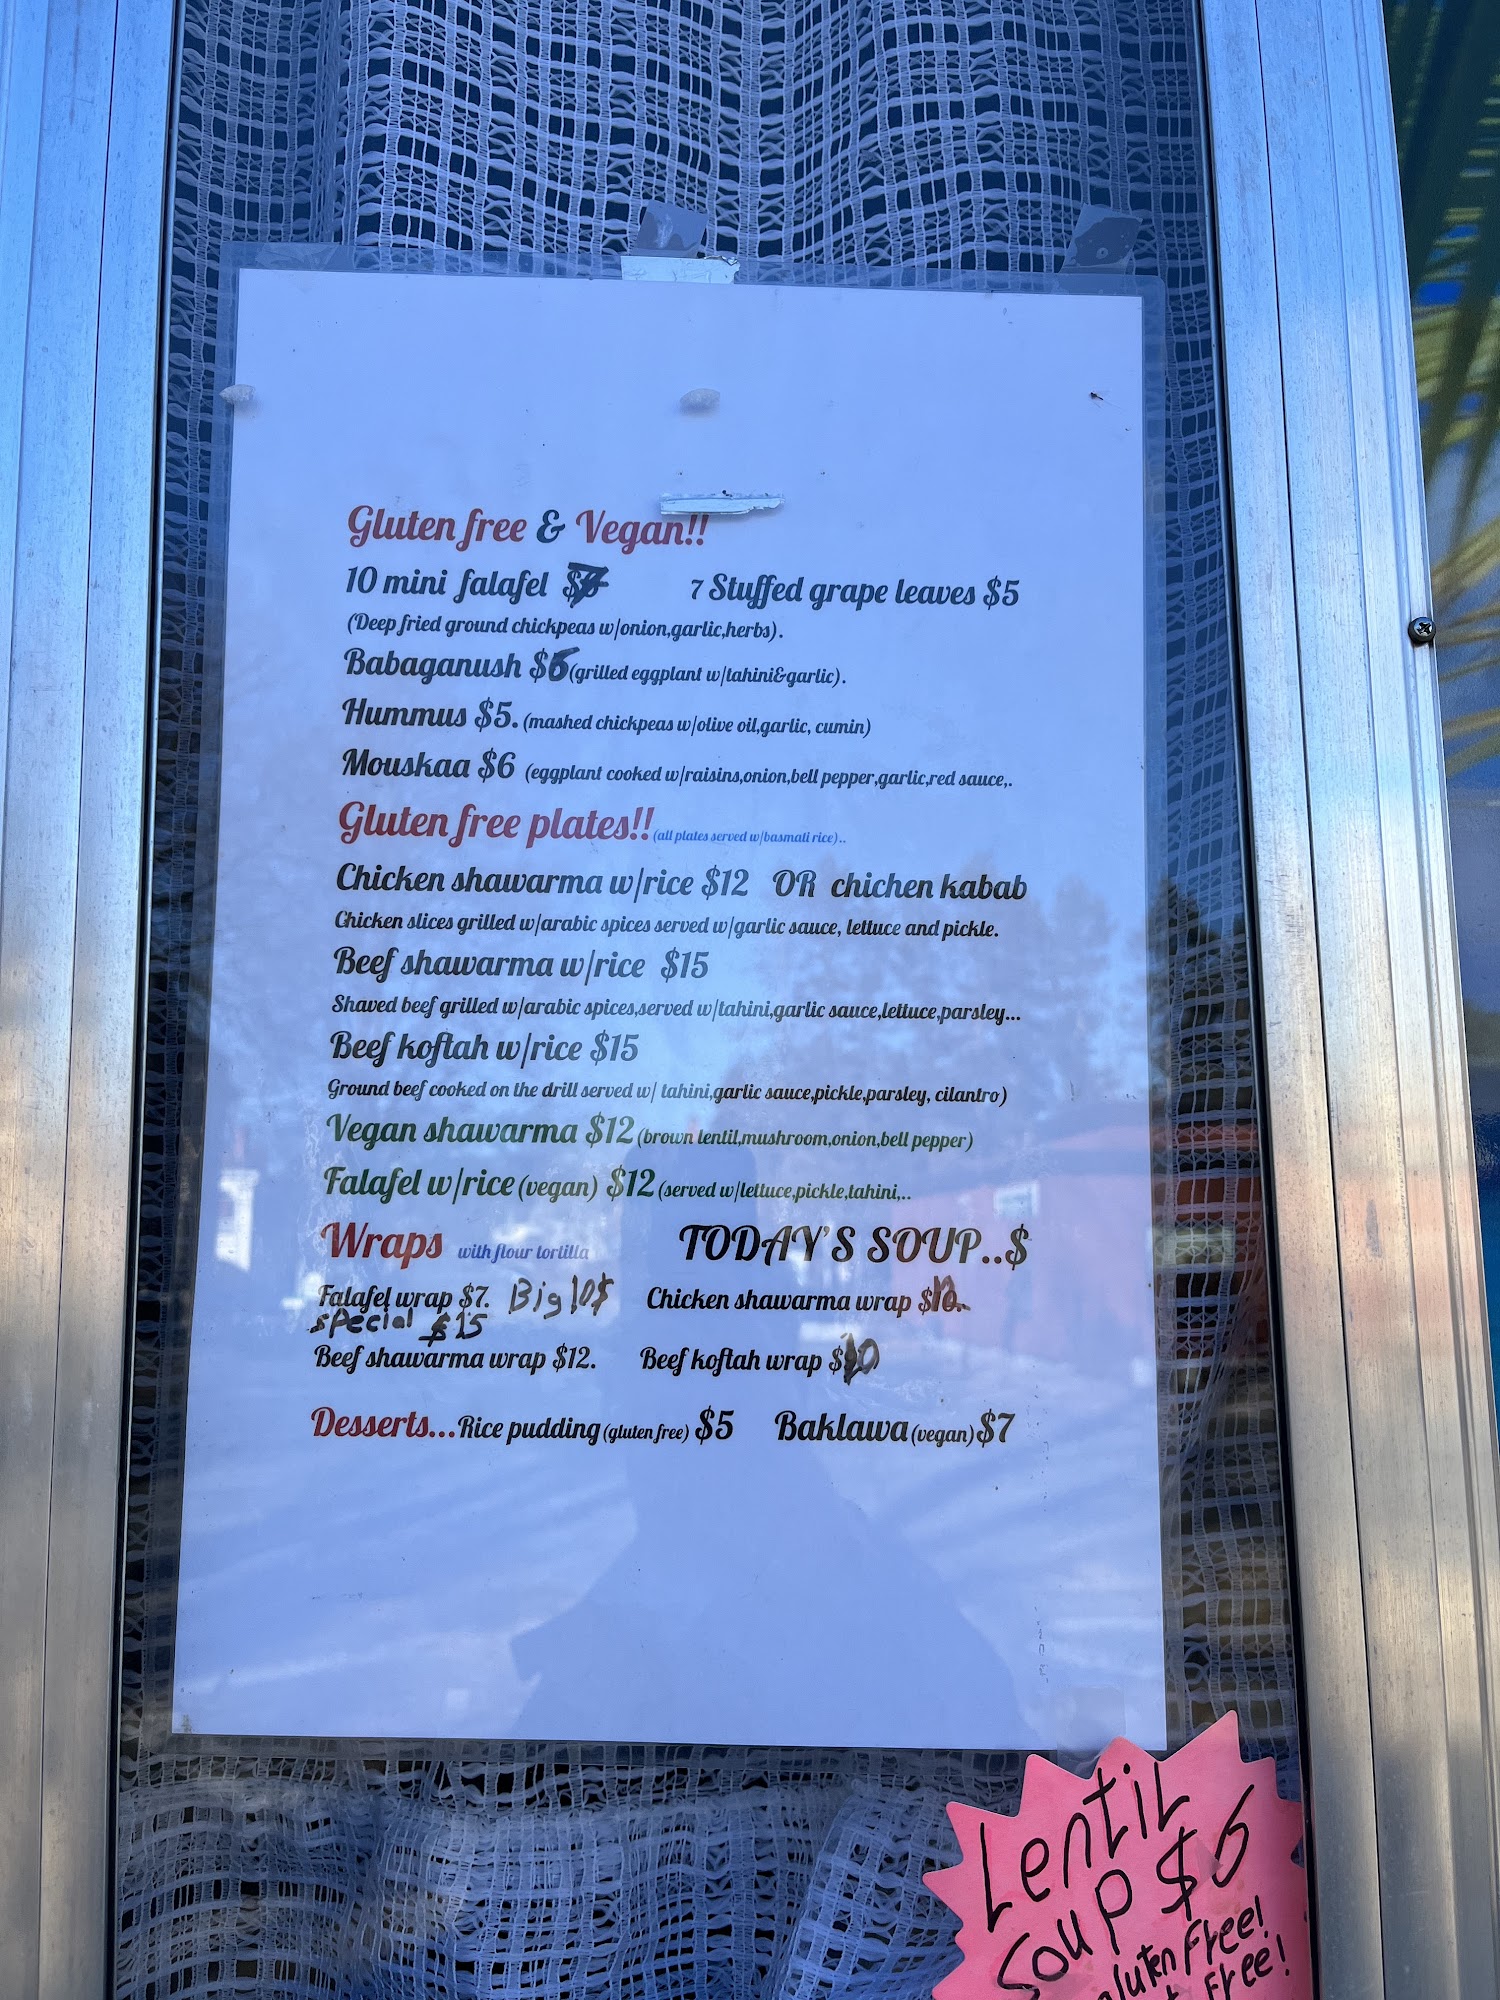 Gluten free & Vegan!!
10 mini falafel $7 7 Stuffed grape leaves $5
(Deep fried ground chickpeas w/onion,garlic,herbs).
Babaganush $6 (grilled eggplant w/tahini&garlic).
Hummus $5. (mashed chickpeas w/olive oil,garlic, cumin)
Mouskaa $6 (eggplant cooked w/raisins,onion,bell pepper,garlic,red sauce,.
Gluten free plates!! (all plates served w/basmati rice)..
Chicken shawarma w/rice $12 OR chichen kabab
Chicken slices grilled w/arabic spices served w/garlic sauce, lettuce and pickle.
Beef shawarma w/rice $15
Shaved beef grilled w/arabic spices,served w/tahini,garlic sauce,lettuce,parsley...
Beef koftah w/rice $15
Ground beef cooked on the drill served w/ tahini,garlic sauce,pickle,parsley, cilantro)
Vegan shawarma $12 (brown lentil,mushroom,onion,bell pepper)
Falafel w/rice (vegan) $12 (served w/lettuce,pickle,tahini,..
Wraps with flour tortilla TODAY'S SOUP..$
Falafel wrap $7. Big 10$ Chicken shawarma wrap
special $15
Beef shawarma wrap $12. Beef koftah wrap
Desserts... Rice pudding (gluten free) $5 Baklawa (vegan) $7
Lentil
Soup $6
Free!
Free!